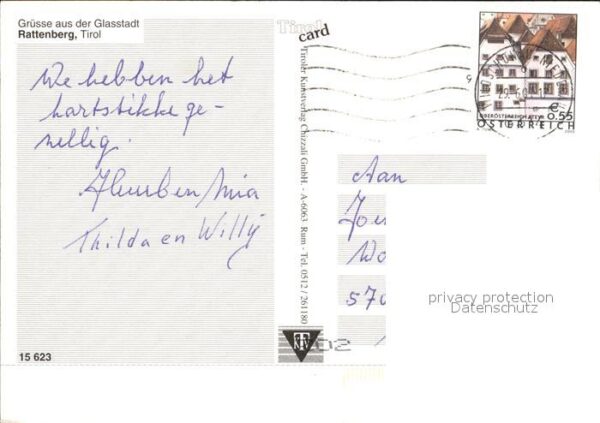 Grüsse aus der Glasstadt
Rattenberg, Tirol
We hebben het
hartstikke ge-
zellig.
Mia
Thilda en Willy
15 623
Tirol
card
Tiroler Kunstverlag Chizzali GmbH. - A-6063 Rum - Tel. 0512 / 261180
€
0,55
ÖSTERREICH
Aan
570
privacy protection
Datenschutz